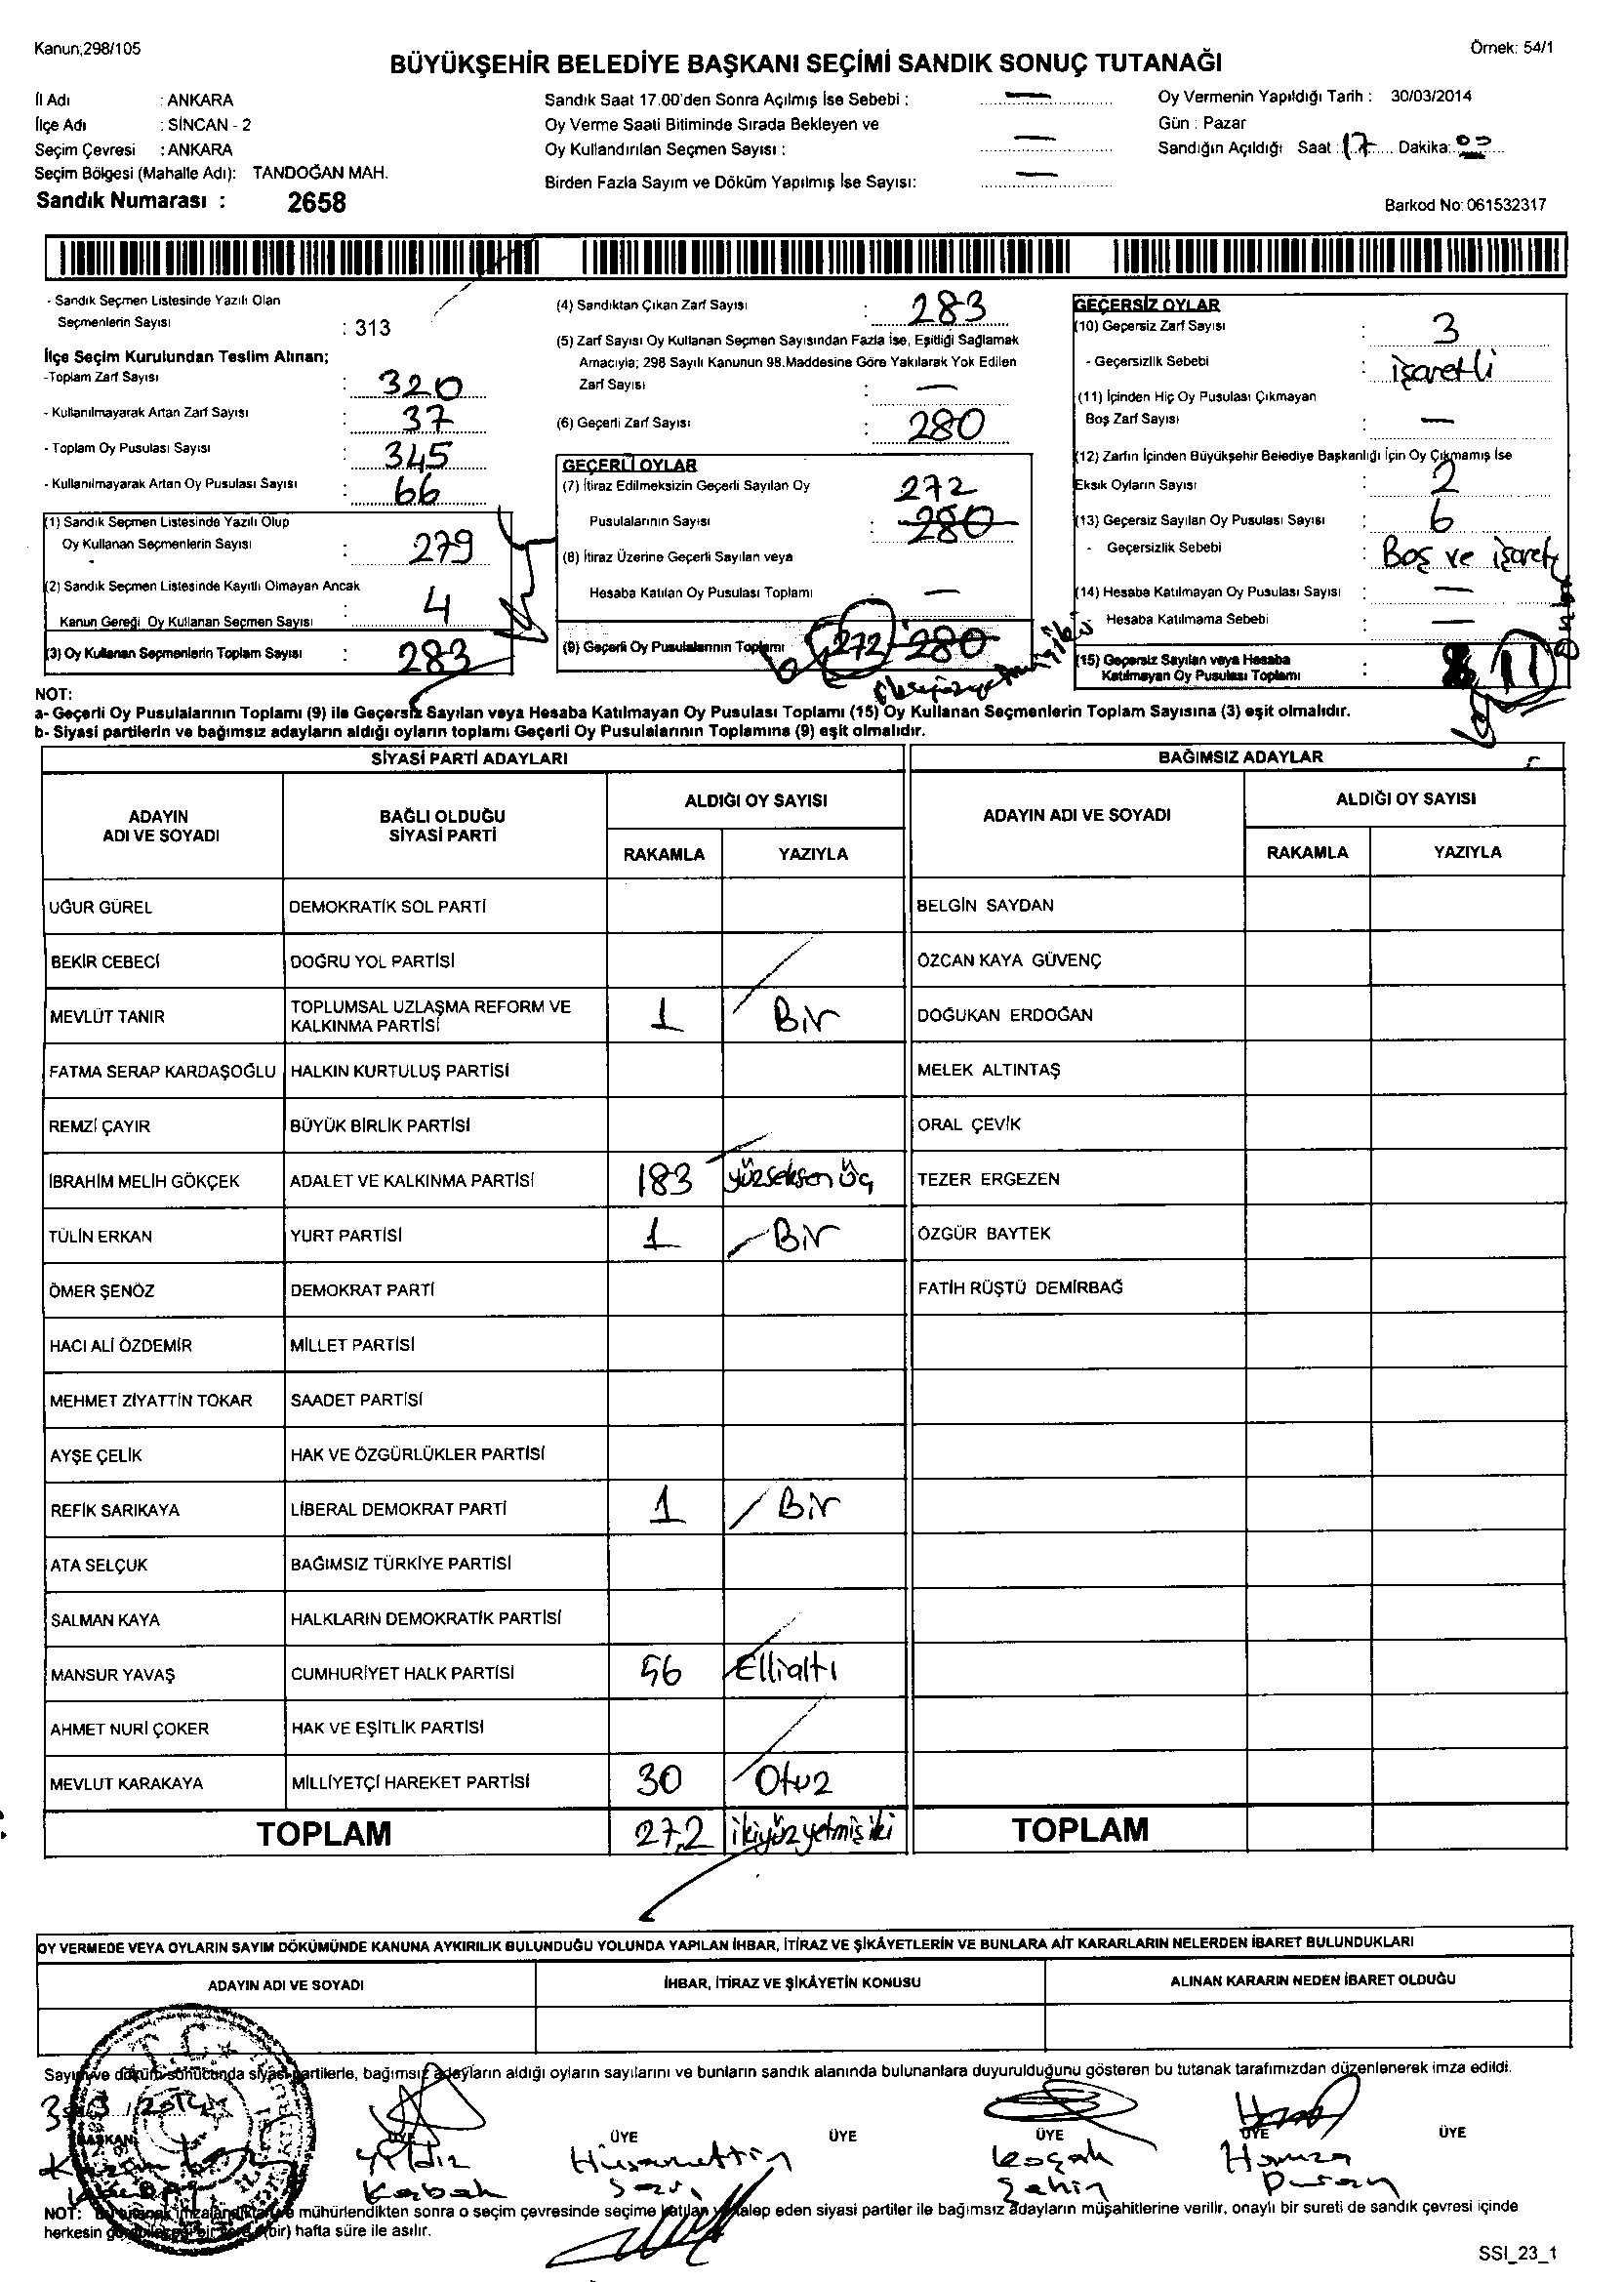 Kanun;298/105
Örnek: 54/1
BÜYÜKŞEHİR BELEDİYE BAŞKANI SEÇİMİ SANDIK SONUÇ TUTANAĞI
İl Adı : ANKARA
İlçe Adı : SİNCAN - 2
Seçim Çevresi : ANKARA
Seçim Bölgesi (Mahalle Adı): TANDOĞAN MAH.
Sandık Numarası : 2658
Sandık Saat 17.00'den Sonra Açılmış İse Sebebi : —
Oy Verme Saati Bitiminde Sırada Bekleyen ve
Oy Kullandırılan Seçmen Sayısı : —
Birden Fazla Sayım ve Döküm Yapılmış İse Sayısı: —
Oy Vermenin Yapıldığı Tarih : 30/03/2014
Gün : Pazar
Sandığın Açıldığı Saat : 17 Dakika: 00
Barkod No: 061532317
- Sandık Seçmen Listesinde Yazılı Olan
Seçmenlerin Sayısı : 313
İlçe Seçim Kurulundan Teslim Alınan;
-Toplam Zarf Sayısı : 320
- Kullanılmayarak Artan Zarf Sayısı : 37
- Toplam Oy Pusulası Sayısı : 345
- Kullanılmayarak Artan Oy Pusulası Sayısı : 66
(1) Sandık Seçmen Listesinde Yazılı Olup
Oy Kullanan Seçmenlerin Sayısı : 279
(2) Sandık Seçmen Listesinde Kayıtlı Olmayan Ancak
Kanun Gereği Oy Kullanan Seçmen Sayısı : 4
(3) Oy Kullanan Seçmenlerin Toplam Sayısı : 283
(4) Sandıktan Çıkan Zarf Sayısı : 283
(5) Zarf Sayısı Oy Kullanan Seçmen Sayısından Fazla İse, Eşitliği Sağlamak
Amacıyla; 298 Sayılı Kanunun 98.Maddesine Göre Yakılarak Yok Edilen
Zarf Sayısı : —
(6) Geçerli Zarf Sayısı : 280
GEÇERLİ OYLAR
(7) İtiraz Edilmeksizin Geçerli Sayılan Oy 272
Pusulalarının Sayısı : 280
(8) İtiraz Üzerine Geçerli Sayılan veya
Hesaba Katılan Oy Pusulası Toplamı —
(9) Geçerli Oy Pusulalarının Toplamı 272 280
GEÇERSİZ OYLAR
(10) Geçersiz Zarf Sayısı : 3
- Geçersizlik Sebebi : işaretli
(11) İçinden Hiç Oy Pusulası Çıkmayan
Boş Zarf Sayısı : —
(12) Zarfın İçinden Büyükşehir Belediye Başkanlığı İçin Oy Çıkmamış İse
Eksik Oyların Sayısı : 2
(13) Geçersiz Sayılan Oy Pusulası Sayısı : 6
- Geçersizlik Sebebi : Boş ve işaretli
(14) Hesaba Katılmayan Oy Pusulası Sayısı : —
Hesaba Katılmama Sebebi : —
(15) Geçersiz Sayılan veya Hesaba
Katılmayan Oy Pusulası Toplamı : 8 11
NOT:
a- Geçerli Oy Pusulalarının Toplamı (9) ile Geçersiz Sayılan veya Hesaba Katılmayan Oy Pusulası Toplamı (15) Oy Kullanan Seçmenlerin Toplam Sayısına (3) eşit olmalıdır.
b- Siyasi partilerin ve bağımsız adayların aldığı oyların toplamı Geçerli Oy Pusulalarının Toplamına (9) eşit olmalıdır.
SİYASİ PARTİ ADAYLARI BAĞIMSIZ ADAYLAR
ADAYIN ADI VE SOYADI BAĞLI OLDUĞU SİYASİ PARTİ ALDIĞI OY SAYISI ADAYIN ADI VE SOYADI ALDIĞI OY SAYISI
RAKAMLA YAZIYLA RAKAMLA YAZIYLA
UĞUR GÜREL DEMOKRATİK SOL PARTİ BELGİN SAYDAN
BEKİR CEBECİ DOĞRU YOL PARTİSİ ÖZCAN KAYA GÜVENÇ
MEVLÜT TANIR TOPLUMSAL UZLAŞMA REFORM VE KALKINMA PARTİSİ 1 Bir DOĞUKAN ERDOĞAN
FATMA SERAP KARDAŞOĞLU HALKIN KURTULUŞ PARTİSİ MELEK ALTINTAŞ
REMZİ ÇAYIR BÜYÜK BİRLİK PARTİSİ ORAL ÇEVİK
İBRAHİM MELİH GÖKÇEK ADALET VE KALKINMA PARTİSİ 183 yüzseksen üç TEZER ERGEZEN
TÜLİN ERKAN YURT PARTİSİ 1 Bir ÖZGÜR BAYTEK
ÖMER ŞENÖZ DEMOKRAT PARTİ FATİH RÜŞTÜ DEMİRBAĞ
HACI ALİ ÖZDEMİR MİLLET PARTİSİ
MEHMET ZİYATTİN TOKAR SAADET PARTİSİ
AYŞE ÇELİK HAK VE ÖZGÜRLÜKLER PARTİSİ
REFİK SARIKAYA LİBERAL DEMOKRAT PARTİ 1 Bir
ATA SELÇUK BAĞIMSIZ TÜRKİYE PARTİSİ
SALMAN KAYA HALKLARIN DEMOKRATİK PARTİSİ
MANSUR YAVAŞ CUMHURİYET HALK PARTİSİ 56 Ellialtı
AHMET NURİ ÇOKER HAK VE EŞİTLİK PARTİSİ
MEVLUT KARAKAYA MİLLİYETÇİ HAREKET PARTİSİ 30 Otuz
TOPLAM 272 ikiyüzyetmiş iki TOPLAM
OY VERMEDE VEYA OYLARIN SAYIM DÖKÜMÜNDE KANUNA AYKIRILIK BULUNDUĞU YOLUNDA YAPILAN İHBAR, İTİRAZ VE ŞİKÂYETLERİN VE BUNLARA AİT KARARLARIN NELERDEN İBARET BULUNDUKLARI
ADAYIN ADI VE SOYADI İHBAR, İTİRAZ VE ŞİKÂYETİN KONUSU ALINAN KARARIN NEDEN İBARET OLDUĞU
T.C.
Sayım ve döküm sonucunda siyasi partilerle, bağımsız adayların aldığı oyların sayılarını ve bunların sandık alanında bulunanlara duyurulduğunu gösteren bu tutanak tarafımızdan düzenlenerek imza edildi.
BAŞKAN ÜYE ÜYE ÜYE ÜYE ÜYE ÜYE
Yıldız Hüsamettin Koçak Hamza
Şahin Duran
NOT: Bu tutanak imzalandıktan ve mühürlendikten sonra o seçim çevresinde seçime katılan ve talep eden siyasi partiler ile bağımsız adayların müşahitlerine verilir, onaylı bir sureti de sandık çevresi içinde
herkesin görebileceği bir yere (bir) hafta süre ile asılır.
SSI_23_1